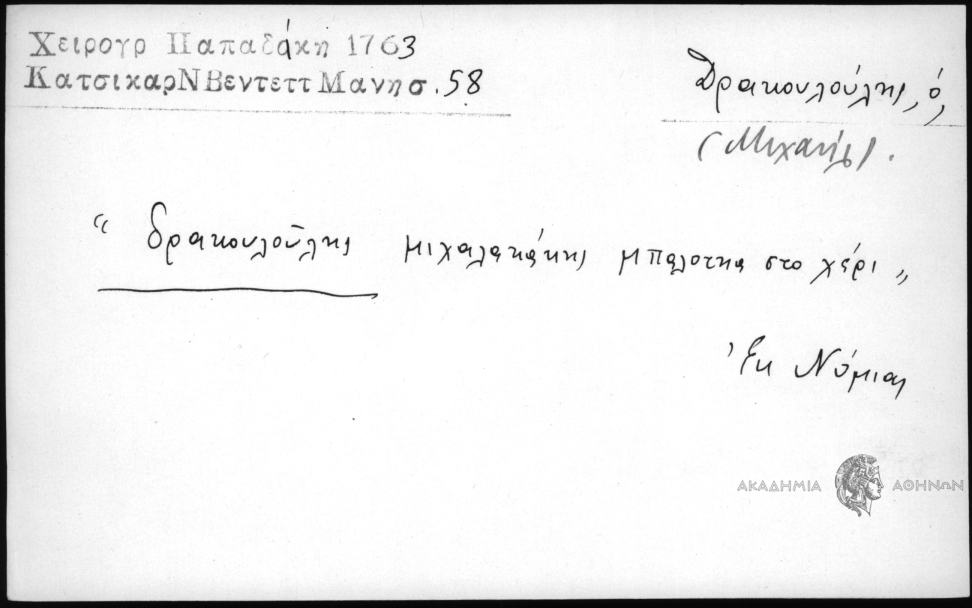 Χειρογρ Παπαδάκη 1763
ΚατσικαρΝΒεντεττΜανησ.58
Δρακουλούλης, ὁ,
(Μιχαήλ).
“ δρακουλούλης μιχαλακάκης μπαλοτκα στο χέρι „
Ἐκ Νόμιας
ΑΚΑΔΗΜΙΑ ΑΘΗΝΩΝ